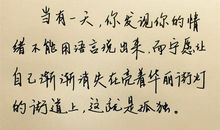 当有一天,你发现你的情
绪不能用语言说出来,而宁愿让
自己渐渐消失在亮着华丽街灯
的街道上,这就是孤独。